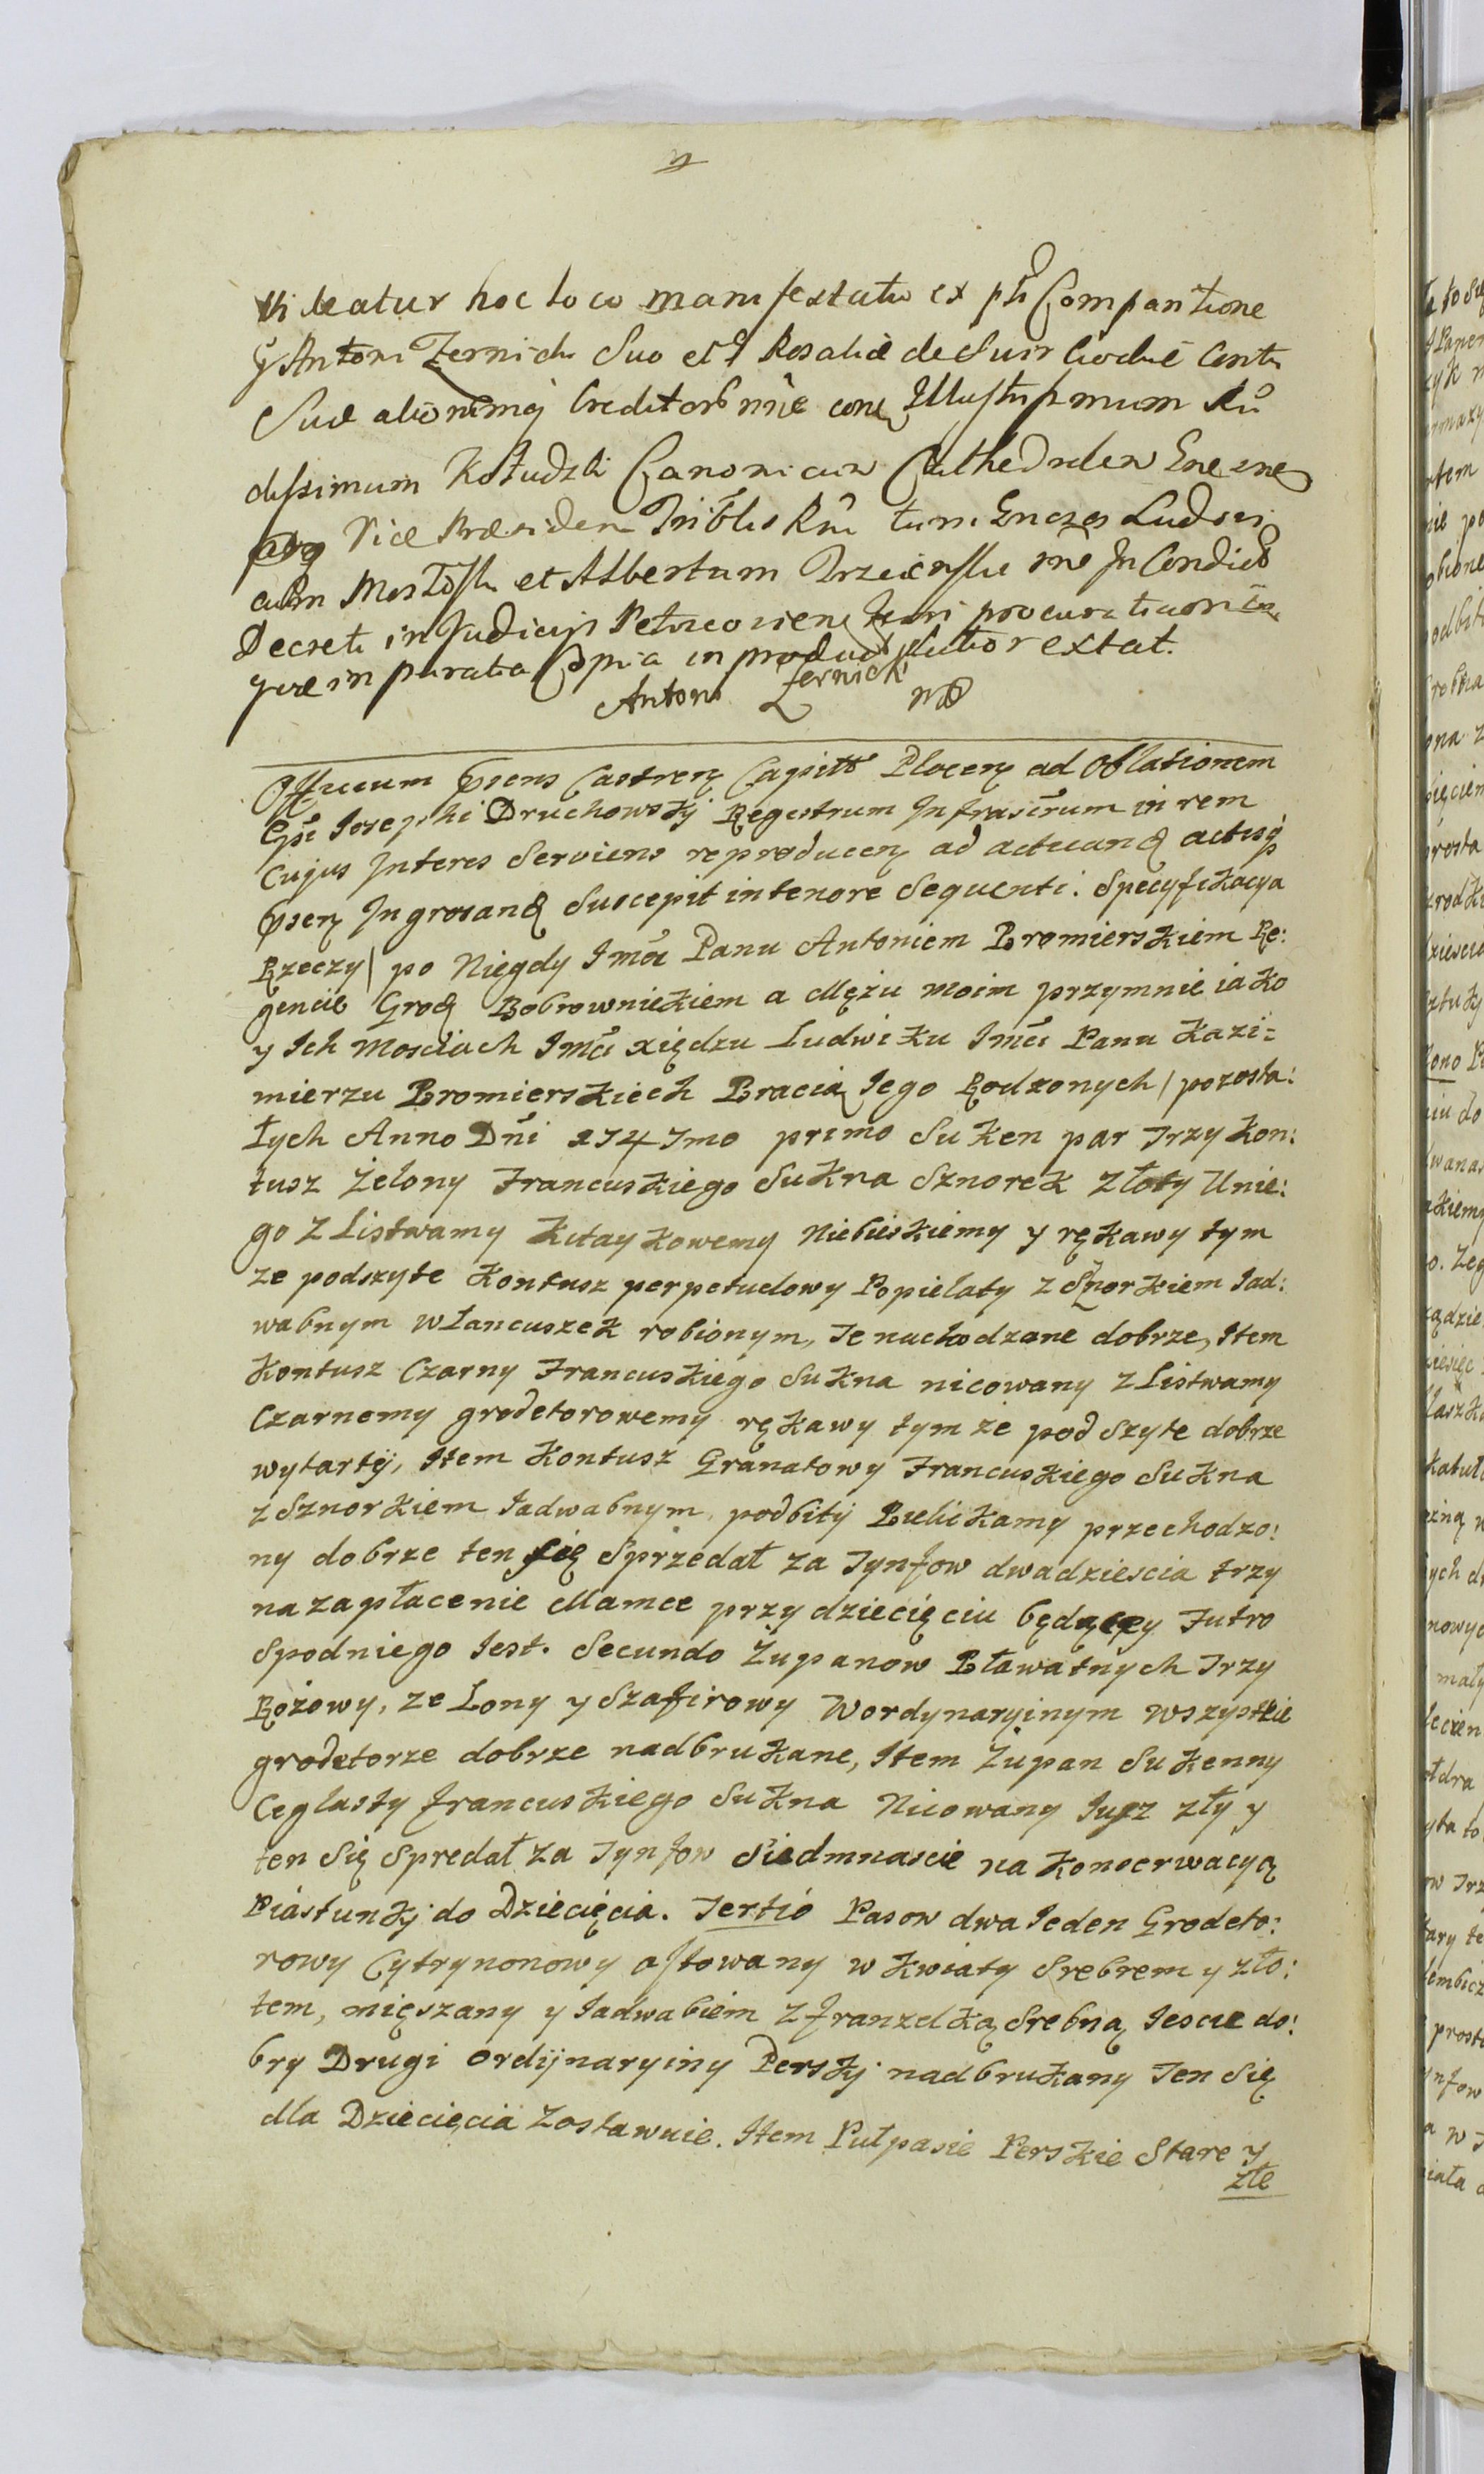 Videatur hoc loco manifestatio ex pti Comparitione
G Antoni Zernicki Suo et G Rosalie de
Sue alionemq Creditorb nnie conq Illustrissimum Rn
dissimum Kołudzki Canonicum Cathedralem Gnesne
Vice Præsiden Triblis Rni tum
et Albertum
Decreti in Judicijs Petricovien
que in parata Copia in product latior extat.
Antoni Zernicki mp
Officium Ppsens Castren Capitt Plocen ad Oblationem
Gpsi Josephi Druchowskj Regestrum Infrascrum in rem
Cujus Interes Serviens reproducen ad actuand actisq
Ppsen Ingrosand Suscepit in tenore Sequenti. Specyfikacya
Rzeczy / po Niegdy Jmci Panu Antoniem Bromierskiem Re:
gencie Grod Bobrownickiem a Mężu moim przymnie iako
y Ich Mosciach Jmci xiędzu Ludwiku Jmci Panu Kazi:
mierzu Bromierskiech Bracią Jego Rodzonych / pozosta:
łych Anno Dni 1747mo primo Suken par Trzy Kon:
tusz Zelony Francuskiego Sukna Sznorek Złoty Unie:
go z Listwamy Kitaykowemy Niebieskiemy y rękawy tym
ze podszyte Kontusz perpetuelowy Popielaty z Sznorkiem Jad:
wabnym włancuszek robionym, Te nachodzane dobrze, Item
Kontusz Czarny Francuskiego Sukna nicowany z Listwamy
Czarnemy grodetorowemy rękawy tym ze podszyte dobrze
wytartÿ, Item Kontusz Granatowy Francuskiego Sukna
z Sznorkiem Jadwabnym, podbitÿ Bielikamy przechodzo:
ny dobrze ten się Sprzedał za Tynfow dwadziescia trzy
na zapłacenie Mamce przy dziecięciu będącey Futro
Spodniego Jest. Secundo Żupanow Bławatnych Trzy
Rożowy, ze Lony y Szafirowy Wordynaryinym wszystkie
grodetorze dobrze nadbrukane, Item Żupan Sukenny
Ceglasty francuskiego Sukna Nicowany Jusz zły y
ten Się Spredał za Tynfow Siedmnascie na Konserwacyą
Piastunkj do Dziecięcia. Tertio Pasow dwa Jeden Grodeto:
rowy Cytrynonowy aftowany w Kwiaty Srebrem y zło:
tem, mięszany y Jadwabiem z franzelką Srebną Jescie do:
bry Drugi ordÿnaryiny Perskj nadbrukany Ten Się
dla Dziecięcia Zostawuie. Item Pułpasie Perskie Stare y
złe